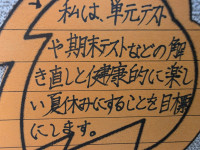 私は、単元テスト
や期末テストなどの解
き直しと健康的に楽し
い夏休みにすることを目標
にします。